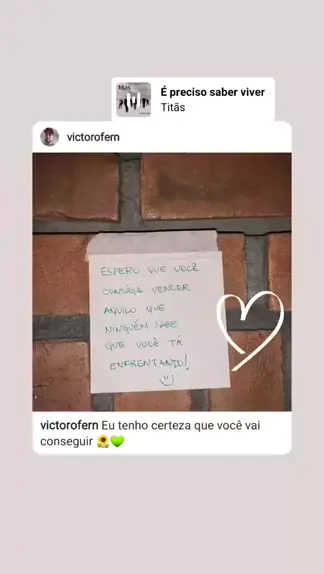 É preciso saber viver
Titãs
victorofern
ESPERO QUE VOCÊ
CONSIGA VENCER
AQUILO QUE
NINGUÉM SABE
QUE VOCÊ TÁ
ENFRENTANDO!
victorofern Eu tenho certeza que você vai
conseguir 🌻💚